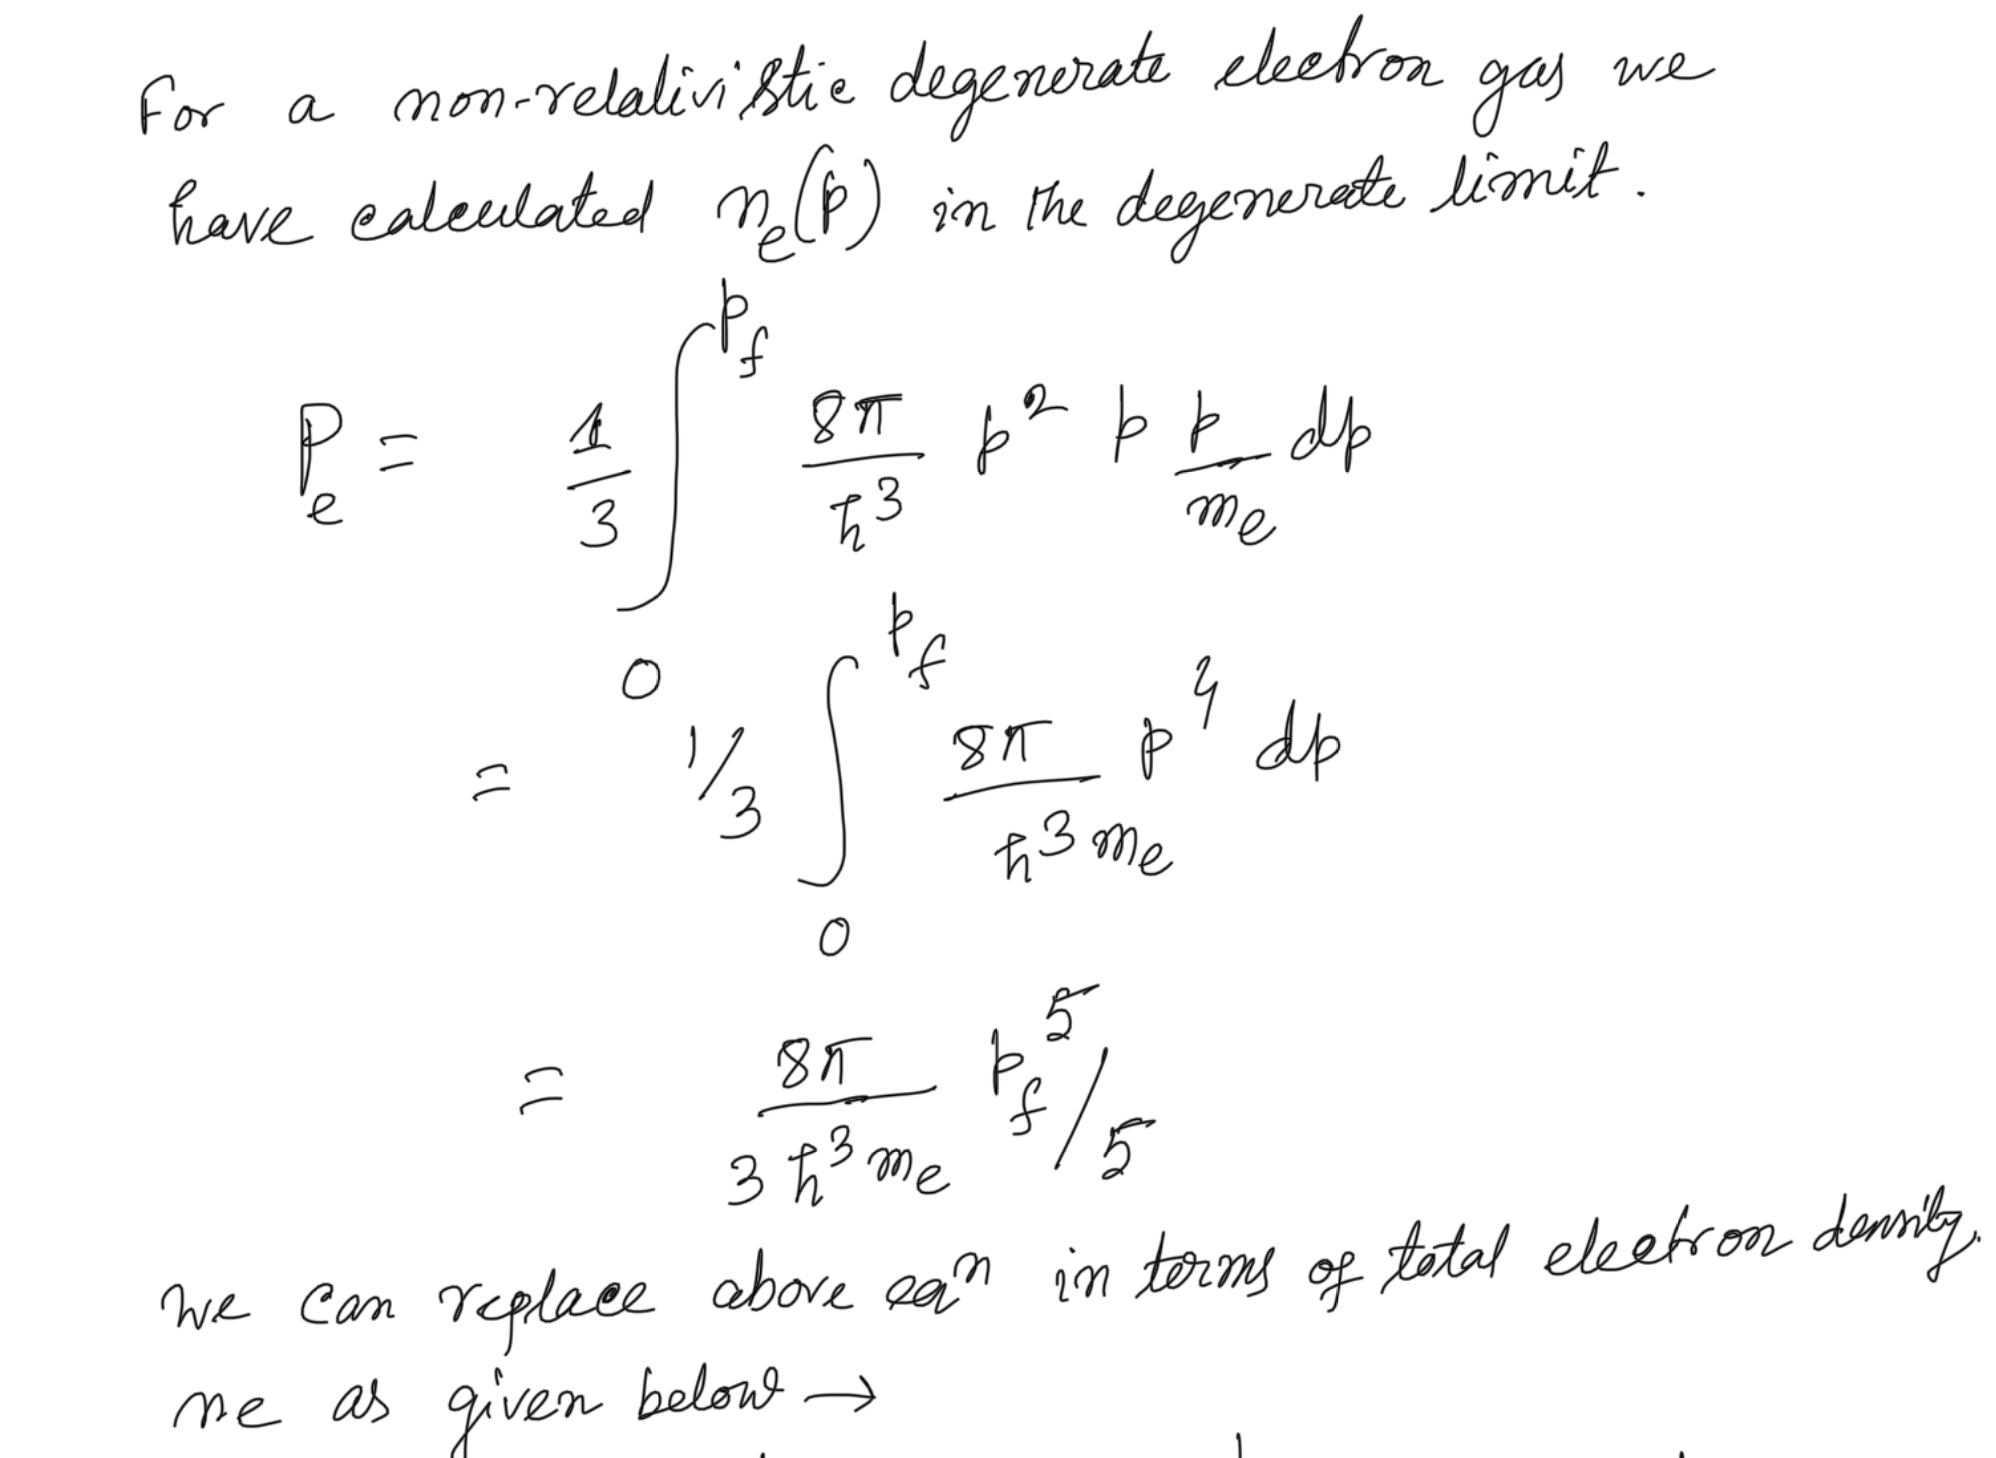 For a non-relativistic degenerate electron gas we
have calculated n_e(p) in the degenerate limit.
P_e = 1/3 ∫_0^{p_f} 8π/ħ^3 p^2 p p/m_e dp
= 1/3 ∫_0^{p_f} 8π/(ħ^3 m_e) p^4 dp
= 8π/(3 ħ^3 m_e) p_f^5/5
we can replace above eqn in terms of total electron density.
ne as given below →